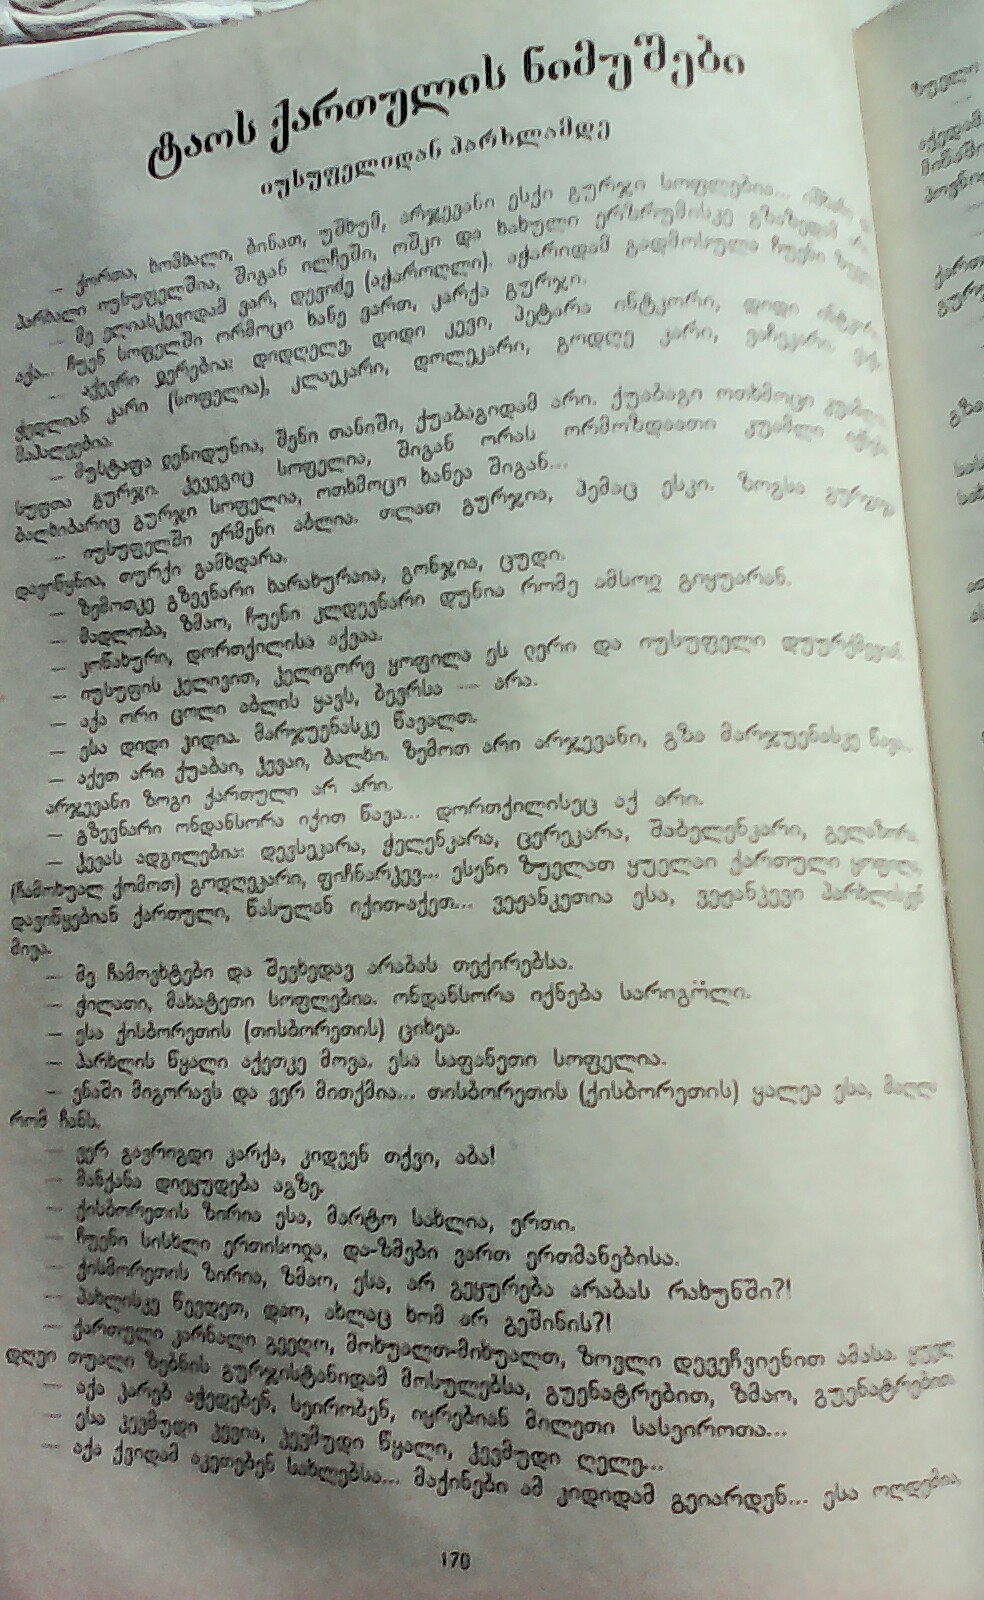 ტაოს ქართულის ნიმუშები
იუსუფელიდან პარხლამდე
— ქორთა, ხომხალი, ბინათ, უშხუმ, არჯევანი ესქი გურჯი სოფლებია...
პარხალი იუსუფელშია, შიგან ილჩეში, ოშკი და ხახული ერზრუმისკე გზაზედამ
— მე ელიასკევიდამ ვარ, დევიძე (აჭაროღლი). აჭარიდამ გადმოსულა ჩუენი
აქა... ჩუენ სოფელში ორმოცი ხანე ვართ, კარქა გურჯი.
— აქევრი ჲერებია: დიდღელე, დიდი კევი, პეტარა ინტკორი, დიდი
ჭედლიან კარი (სოფელია), კლავკარი, დოლეკარი, გოდღე კარი,
მაჰალეებია.
— მუსტაფა ჲენიდუნია, შენი თანიში, ქუაბაგიდამ არი. ქუაბაგი ოთხმოცი
სუფთა გურჯი. ჰევეგიც სოფელია, შიგან ორას ორმოზდაათი კუამლი
ბალხიბარიც გურჯი სოფელია, ოთხმოცი ხანეა შიგან...
— იუსუფელში ერმენი აბლია. თლათ გურჯია, ჰემაც ესკი. ზოგსა
დავიწყნია, თურქი გამხდარა.
— ზემოთკე გზევნარი ხარახურაია, გონჯია, ცუდი.
— მადლობა, ზმაო, ჩუენი კლდევნარი დუნია რომე ამსოღ გიყუარან.
— კოწახური, დორთქილისა აქვაა.
— იუსუფის ჰელივით, ჰელიგორე ყოფილა ეს ჲერი და იუსუფელი
— აქა ორი ცოლი აბლის ყავს, ბევრსა — არა.
— ესა დიდი კიდია. მარჯუენასკე წავალთ.
— აქეთ არი ქუაბაი, ჰევაი, ბალხი. ზემოთ არი არჯევანი, გზა მარჯუენასკე
არჯევანი ზოგი ქართული არ არი.
— გზევნარი ონდანსორა იქით წავა... დორთქილისეც აქ არი.
— ჰევას ადგილებია: დევსეკარა, ჭელენკარა, ცერეკარა, შაბელენკარი,
(ჩამოხუალ ქომოთ) გოდღეკარი, ფიჩნარკევ... ესენი ზუელათ ყუელაი ქართული
დავიწყებიან ქართული, წასულან იქით-აქეთ... ვეჟანკეთია ესა, ვეჟანკევი
მივა.
— მე ჩამოვხტები და შევხედავ არაბას თექირებსა.
— ჭილათი, მახატეთი სოფლებია. ონდანსორა იქნება სარიგოლი.
— ესა ქისბორეთის (თისბორეთის) ციხეა.
— პარხლის წყალი აქეთკე მოვა. ესა საფანეთი სოფელია.
— ენაში მიგორავს და ვერ მითქმია... თისბორეთის (ქისბორეთის) ყალეა ესა, მაღლა
რომ ჩანს.
— ვერ გავრიგდი კარქა, კიდვენ თქვი, აბა!
— მანქანა დიეყუდება აგზე.
— ქისბორეთის ზირია ესა, მარტო სახლია, ერთი.
— ჩუენი სისხლი ერთისოჲა, და-ზმები ვართ ერთმანებისა.
— ქისმორეთის ზირია, ზმაო, ესა, არ გეყურება არაბას რახუნში?!
— პახლისკე წევედეთ, დაო, ახლაც ხომ არ გეშინის?!
— ქართული კარნალი გევღო, მოხუალთ-მიხუალთ, ზოვლი დევეჩვიენით ამასა. ყუელ
დღეი თუალი ზებნის გურჯისტანიდამ მოსულებსა, გუენატრებით, ზმაო, გუენატრებით
— აქა კარებ აჭედებენ, სეირობენ, იყრებიან მილეთი სასეიროთა...
— ესა ჰევმუდი კევია, ჰევმუდი წყალი, ჰევმუდი ღელე...
— აქა ქვიდამ აკეთებენ სახლებსა... მაქინები ამ კიდიდამ გეიარდენ... ესა
170